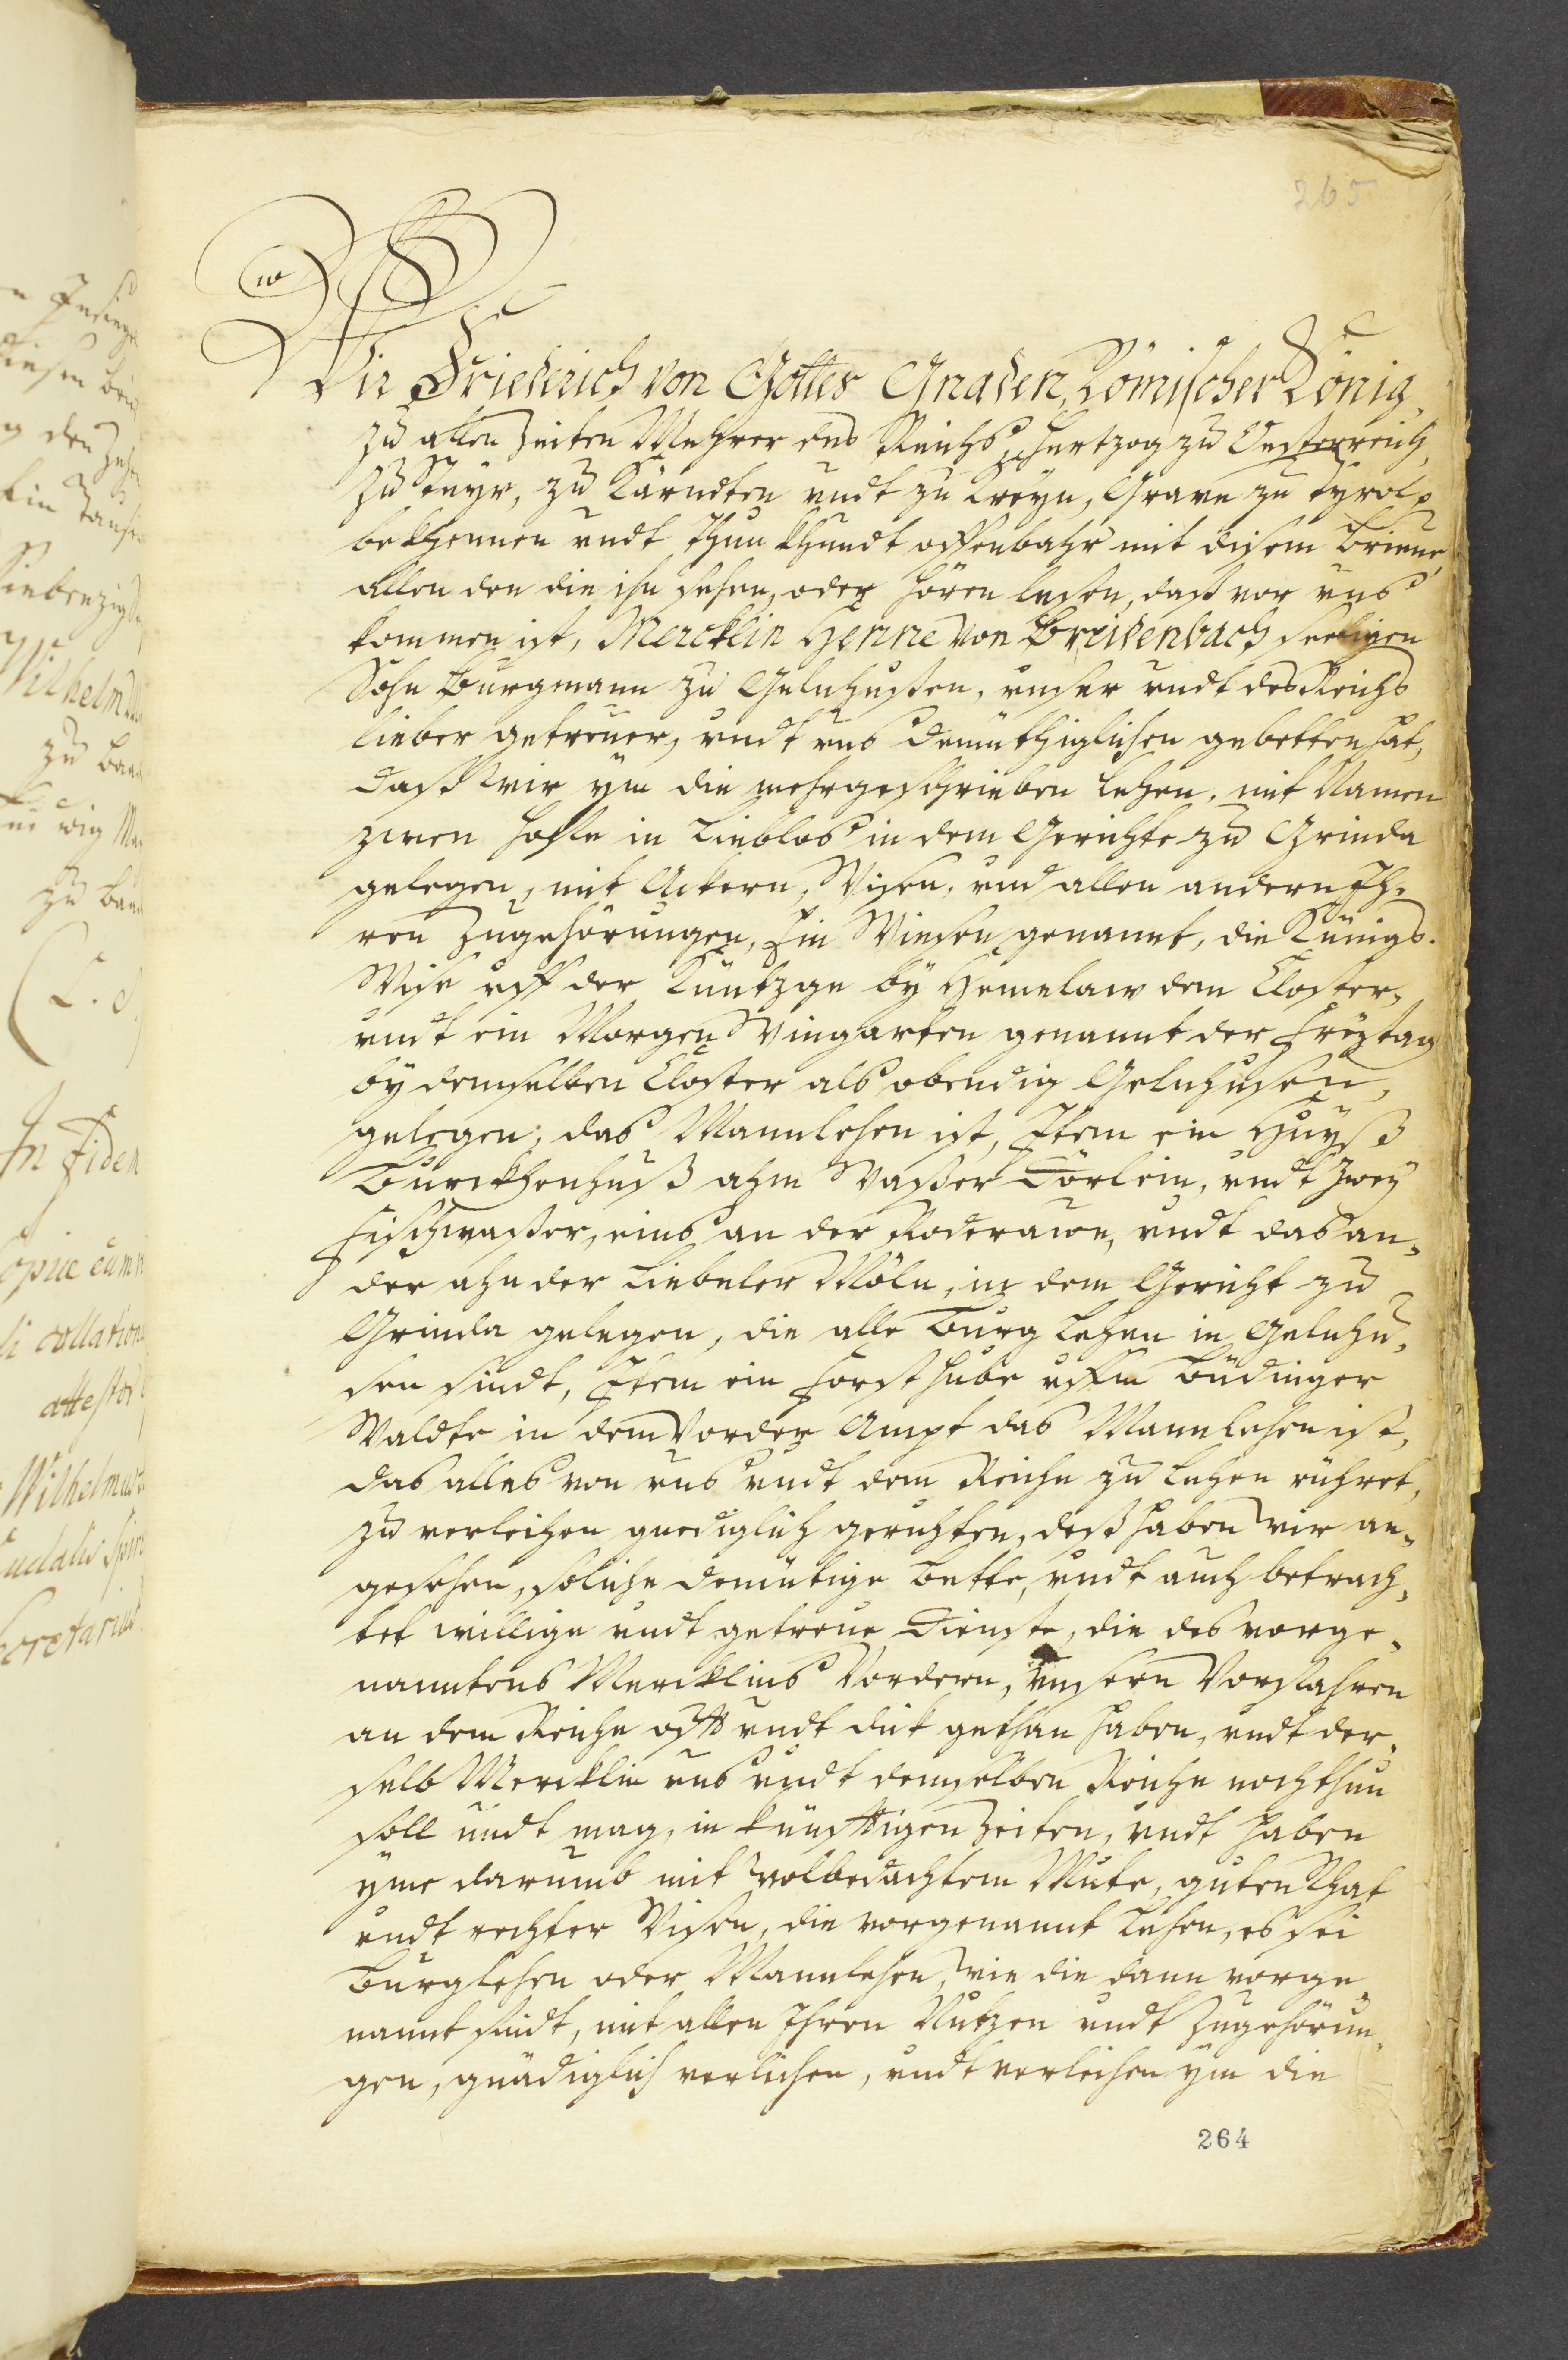 265
Wir Friederich von Gottes Gnaden, Römischer König,
zu allen Zeiten Mehrer des Reichs, Hertzog zu Oesterreich,
zu Steyr, zu Kärndten undt zu Kreyn, Grave zu Tyrol p
bekhennen undt thun khundt offenbahr mit disem Brieve,
allen den die ihn sehen, oder hören lesen, daß vor uns
kommen ist, Mercklin Henne von Breidenbach seeligen
Sohn Burgmann zu Gelnhußen, unser undt des Reichs
lieber getreuer, undt uns demüthiglichen gebetten hat,
daß wir ym die nachgeschrieben Lehen, mit Namen
zween Hoffe in Lieblos in dem Gerichte zu Grinda
gelegen, mit Ackern, Wisen, und allen andern Ih-
ren Zugehörungen, Ein Wiesen genannt, die Künigs-
Wise uff der Küntzge by Hemelaw dem Closter,
undt ein Morgen Wingarten genannt der Freytag
by demselben Closter als obendig Gelnhusen,
gelegen, das Mannlehen ist, Item ein Huyß
Burckhenhuß ahm Waßer Dörlein, undt zwey
Fischwaßer, eins an der Roderauwe, undt das an-
der ahn der Liebeler Möln, in dem Gericht zu
Grinda gelegen, die alle Burg Lehen in Gelnhu-
sen sindt, Item ein Forst hube uffm Büdinger
Waldte in dem Vorder Ampt das Mannlehen ist,
das alles von uns undt dem Reiche zu Lehen rühret,
zu verleihen gnediglich geruhten, deß haben wir an-
gesehen, soliche demütige Bette, undt auch betrach-
tet willige undt getreue Dienste, die des vorge-
nanntens Mercklins Vordern, unsern Vorfahren
an dem Reiche offt undt dick gethan haben, undt der-
selb Mercklin uns undt demselben Reiche noch thun
soll undt mag, in künfftigen Zeiten, undt haben
yme darumb mit wolbedachtem Mute, guten Rhat
undt rechter Wisen, die vorgenannt Lehen, es sei
Burglehen oder Mannlehen, wie die dann vorge-
nannt sindt, mit allen Ihren Nutzen undt Zugehörun-
gen, gnädiglich verliehen, undt verleihen ym die
264